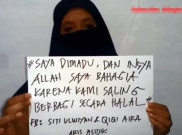 #SAYA DIMADU, DAN INSYA
ALLAH SAYA BAHAGIA
KARENA KAMI SALING
BERBAGI SECARA HALAL"
FB: SITI ULNIYAH & QIBI AIRA
ARIS ASIDIK